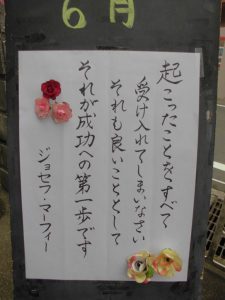 6月
起こったことをすべて
受け入れてしまいなさい
それも良いこととして
それが成功への第一歩です
ジョセフ・マーフィー